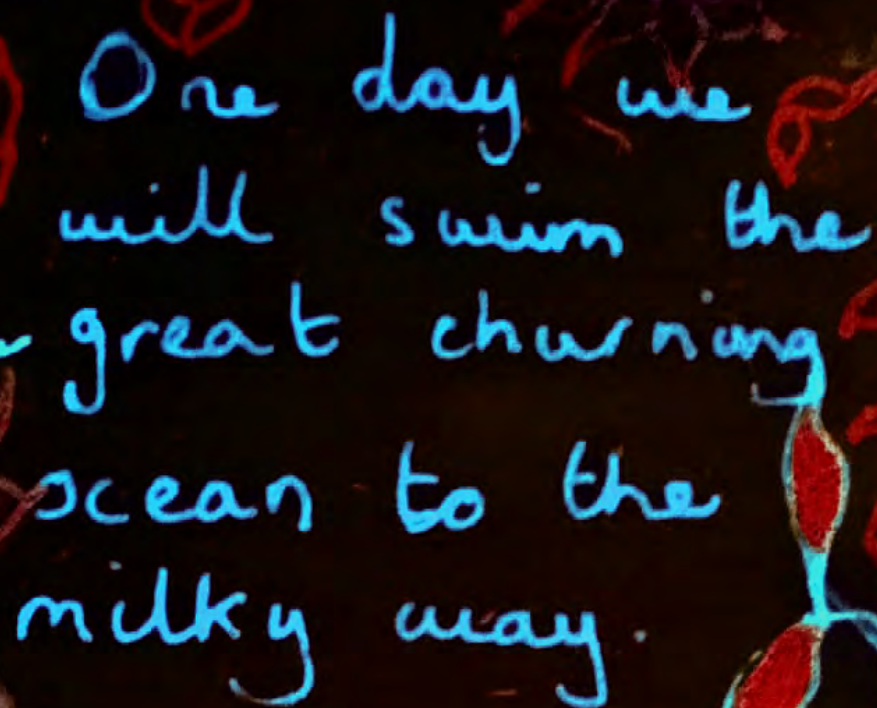 One day we
will swim the
great churning
ocean to the
milky way.